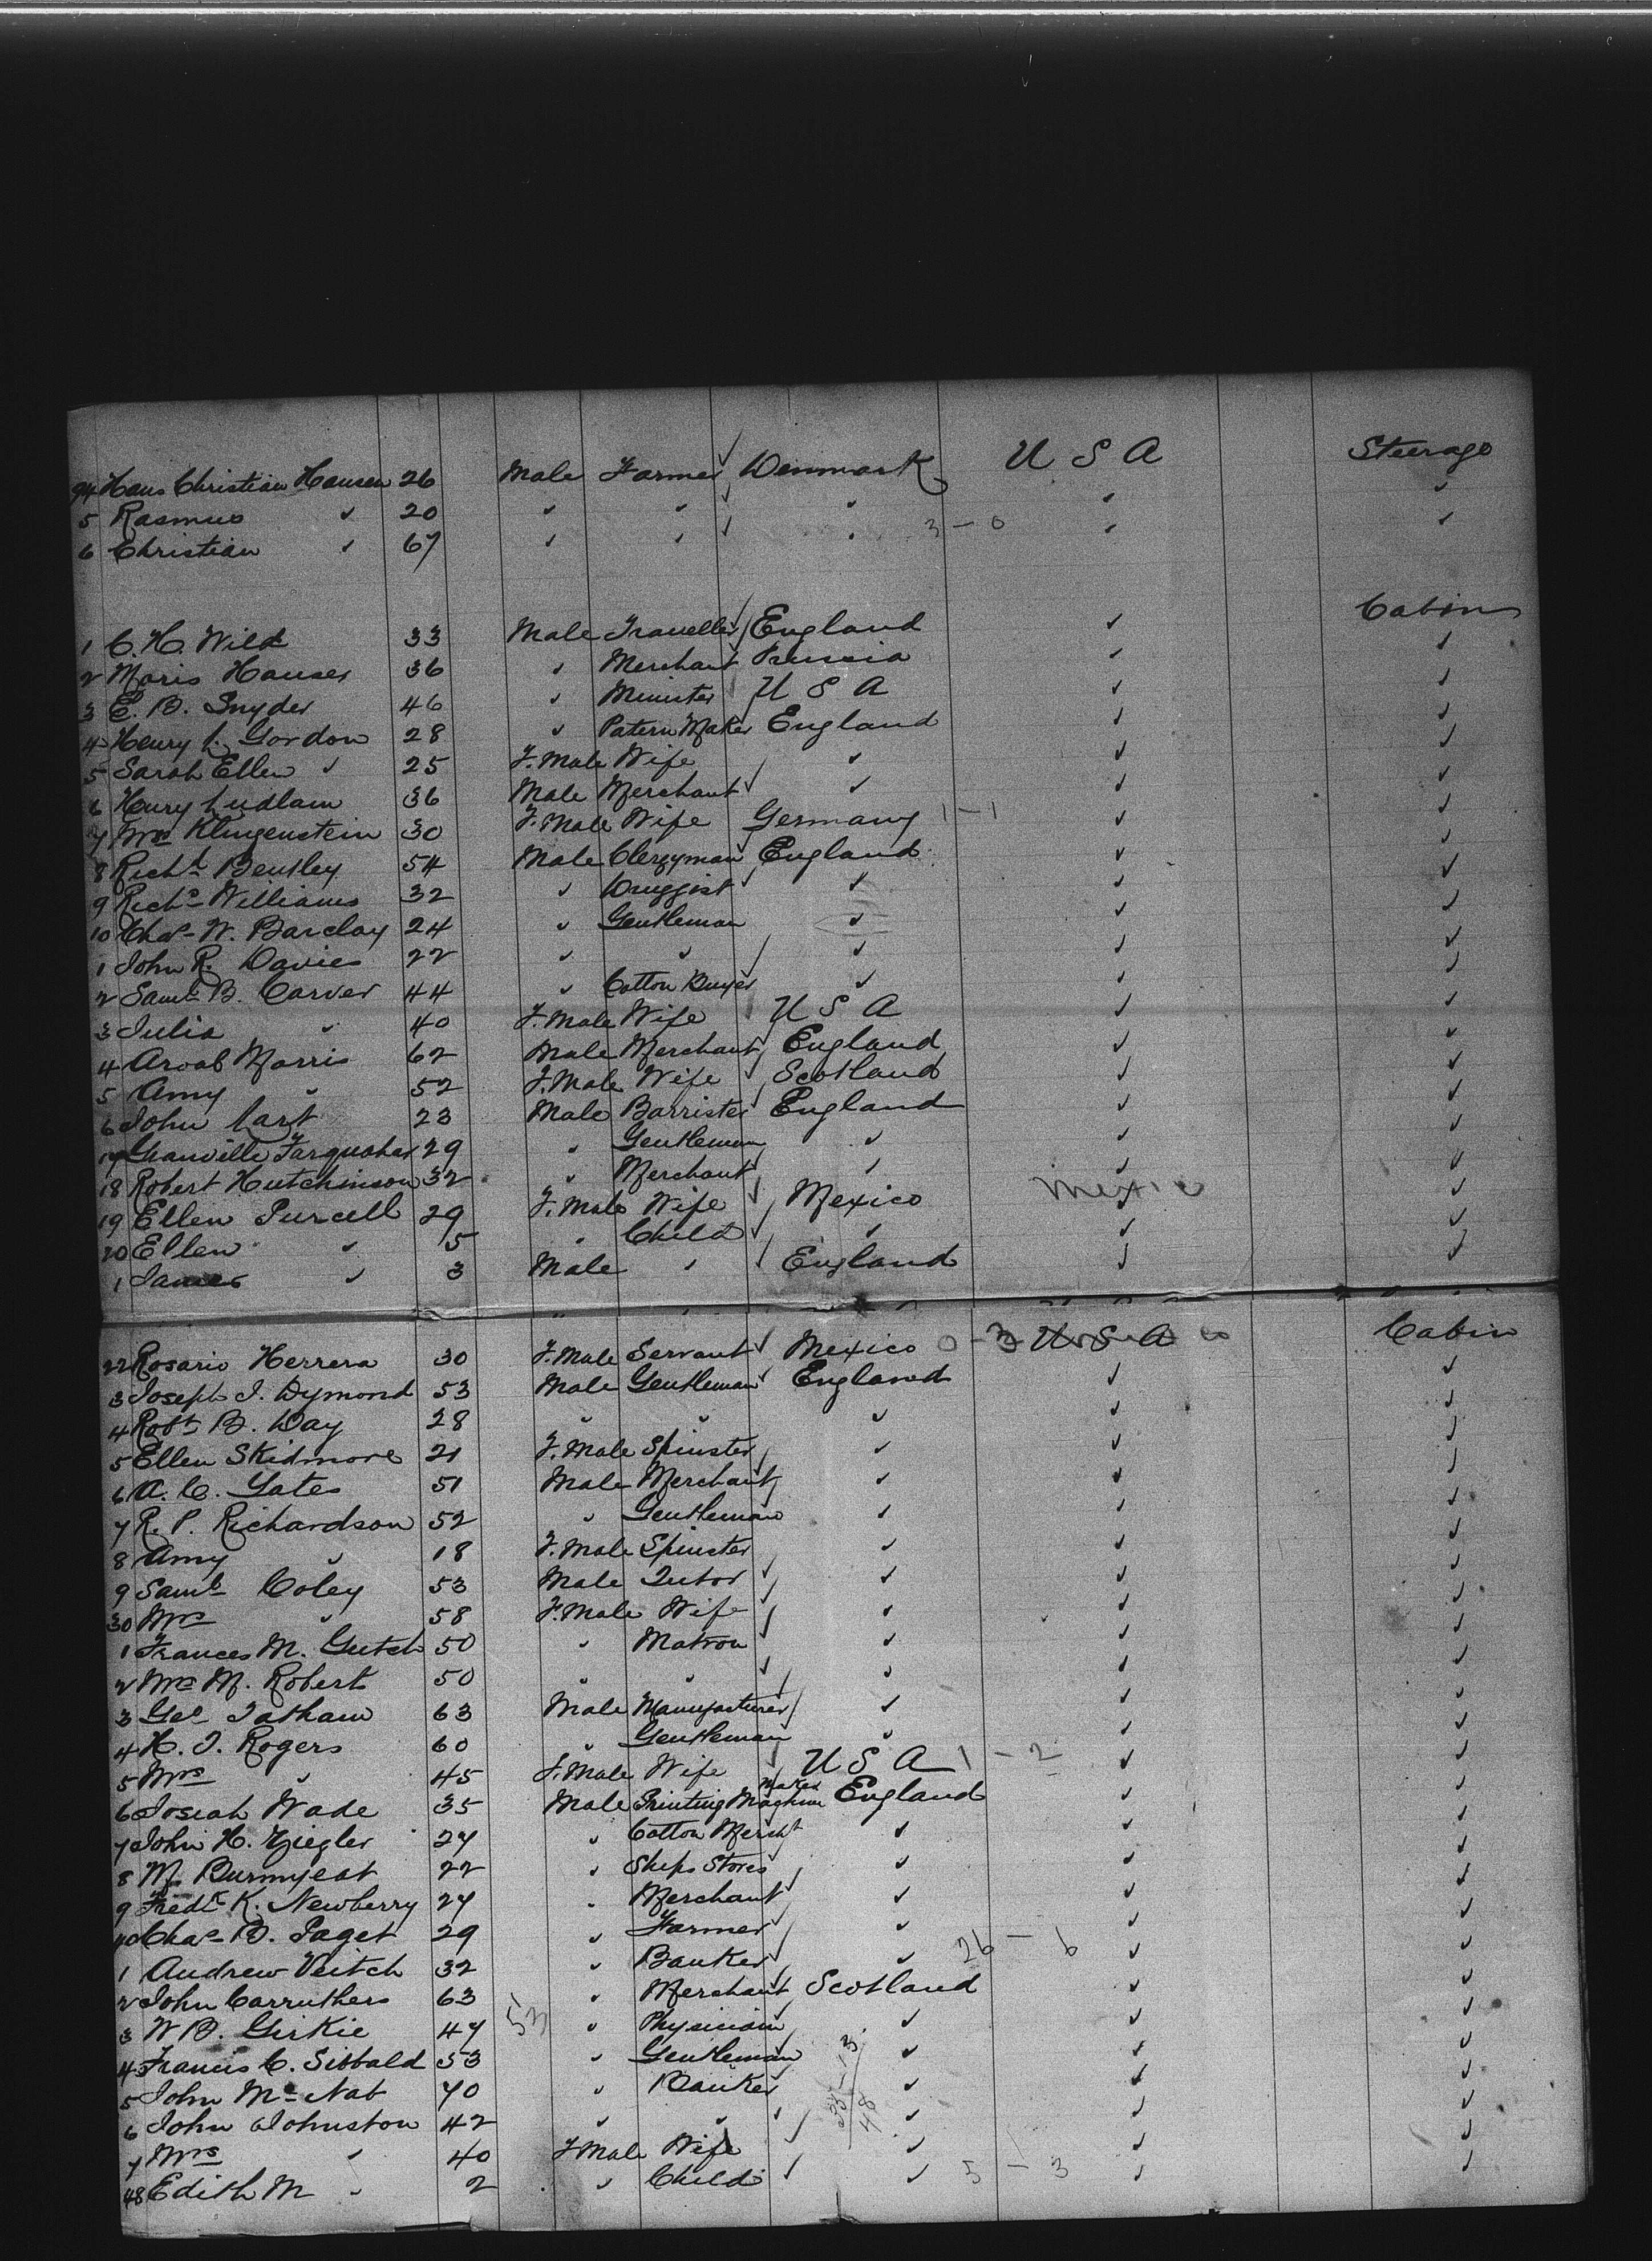 94 Hans Christian Hansen 26 Male Farmer Denmark U S A Steerage
5 Rasmus " 20 " " " " "
6 Christian " 67 " " " 3 - 0 " "
Cabin
1 C. H. Wild 33 Male Traveller England " "
2 Moris Hauser 36 " Merchant Prussia " "
3 E. B. Snyder 46 " Minister U S A " "
4 Henry Gordon 28 " Patern Maker England " "
5 Sarah Ellen " 25 F. Male Wife " " "
6 Henry Ludlam 36 Male Merchant " " "
7 Mrs Klingenstein 30 F. Male Wife Germany 1 - 1 " "
8 Richd Bentley 54 Male Clergyman England " "
9 Richd Williams 32 " Druggist " " "
10 Chas W. Barclay 24 " Gentleman " " "
1 John R. Davies 22 " " " " "
2 Saml B. Carver 44 " Cotton Buyer " " "
3 Julia " 40 F. Male Wife U S A " "
4 Morris 62 Male Merchant England " "
5 Amy " 52 F. Male Wife Scotland " "
6 John 23 Male Barrister England " "
17 Granville Farquhar 29 " Gentleman " " "
18 Robert Hutchinson 32 " Merchant " " "
19 Ellen Purcell 29 F. Male Wife Mexico Mexico " "
20 Ellen " 5 " Child " " "
1 James " 3 Male " England " "
22 Rosario Herrera 30 F. Male Servant Mexico 0 - 3 U S A Cabin
3 Joseph J. Dymond 53 Male Gentleman England " "
4 Robt B. Day 28 " " " " "
5 Ellen Skidmore 21 F. Male Spinster " " "
6 A. C. Yates 51 Male Merchant " " "
7 R. P. Richardson 52 " Gentleman " " "
8 Amy " 18 F. Male Spinster " " "
9 Saml Coley 53 Male Tutor " " "
30 Mrs " 58 F. Male Wife " " "
1 Frances M. Gutch 50 " Matron " " "
2 Mrs M. Robert 50 " " " " "
3 Geo Tatham 63 Male Manufacturer " " "
4 H. J. Rogers 60 " Gentleman " " "
5 Mrs " 45 F. Male Wife U S A 1 - 2 " "
6 Josiah Wade 35 Male Printing Machine Maker England " "
7 John H. Ziegler 27 " Cotton Mercht " " "
8 M. Burnyeat 22 " Ships Stores " " "
9 Fredk K. Newberry 27 " Merchant " " "
40 Chas B. Paget 29 " Farmer " " "
1 Andrew Veitch 32 " Banker " 26 - 6 " "
2 John Carruthers 63 " Merchant Scotland " "
3 W B. Girkie 47 53 " Physician " " "
4 Francis C. Sibbald 53 " Gentleman " " "
5 John McNab 70 " Banker " " "
6 John Johnston 42 " " 35 - 13 48 " " "
7 Mrs " 40 F Male Wife " " "
48 Edith M " 2 " Child " 5 - 3 " "